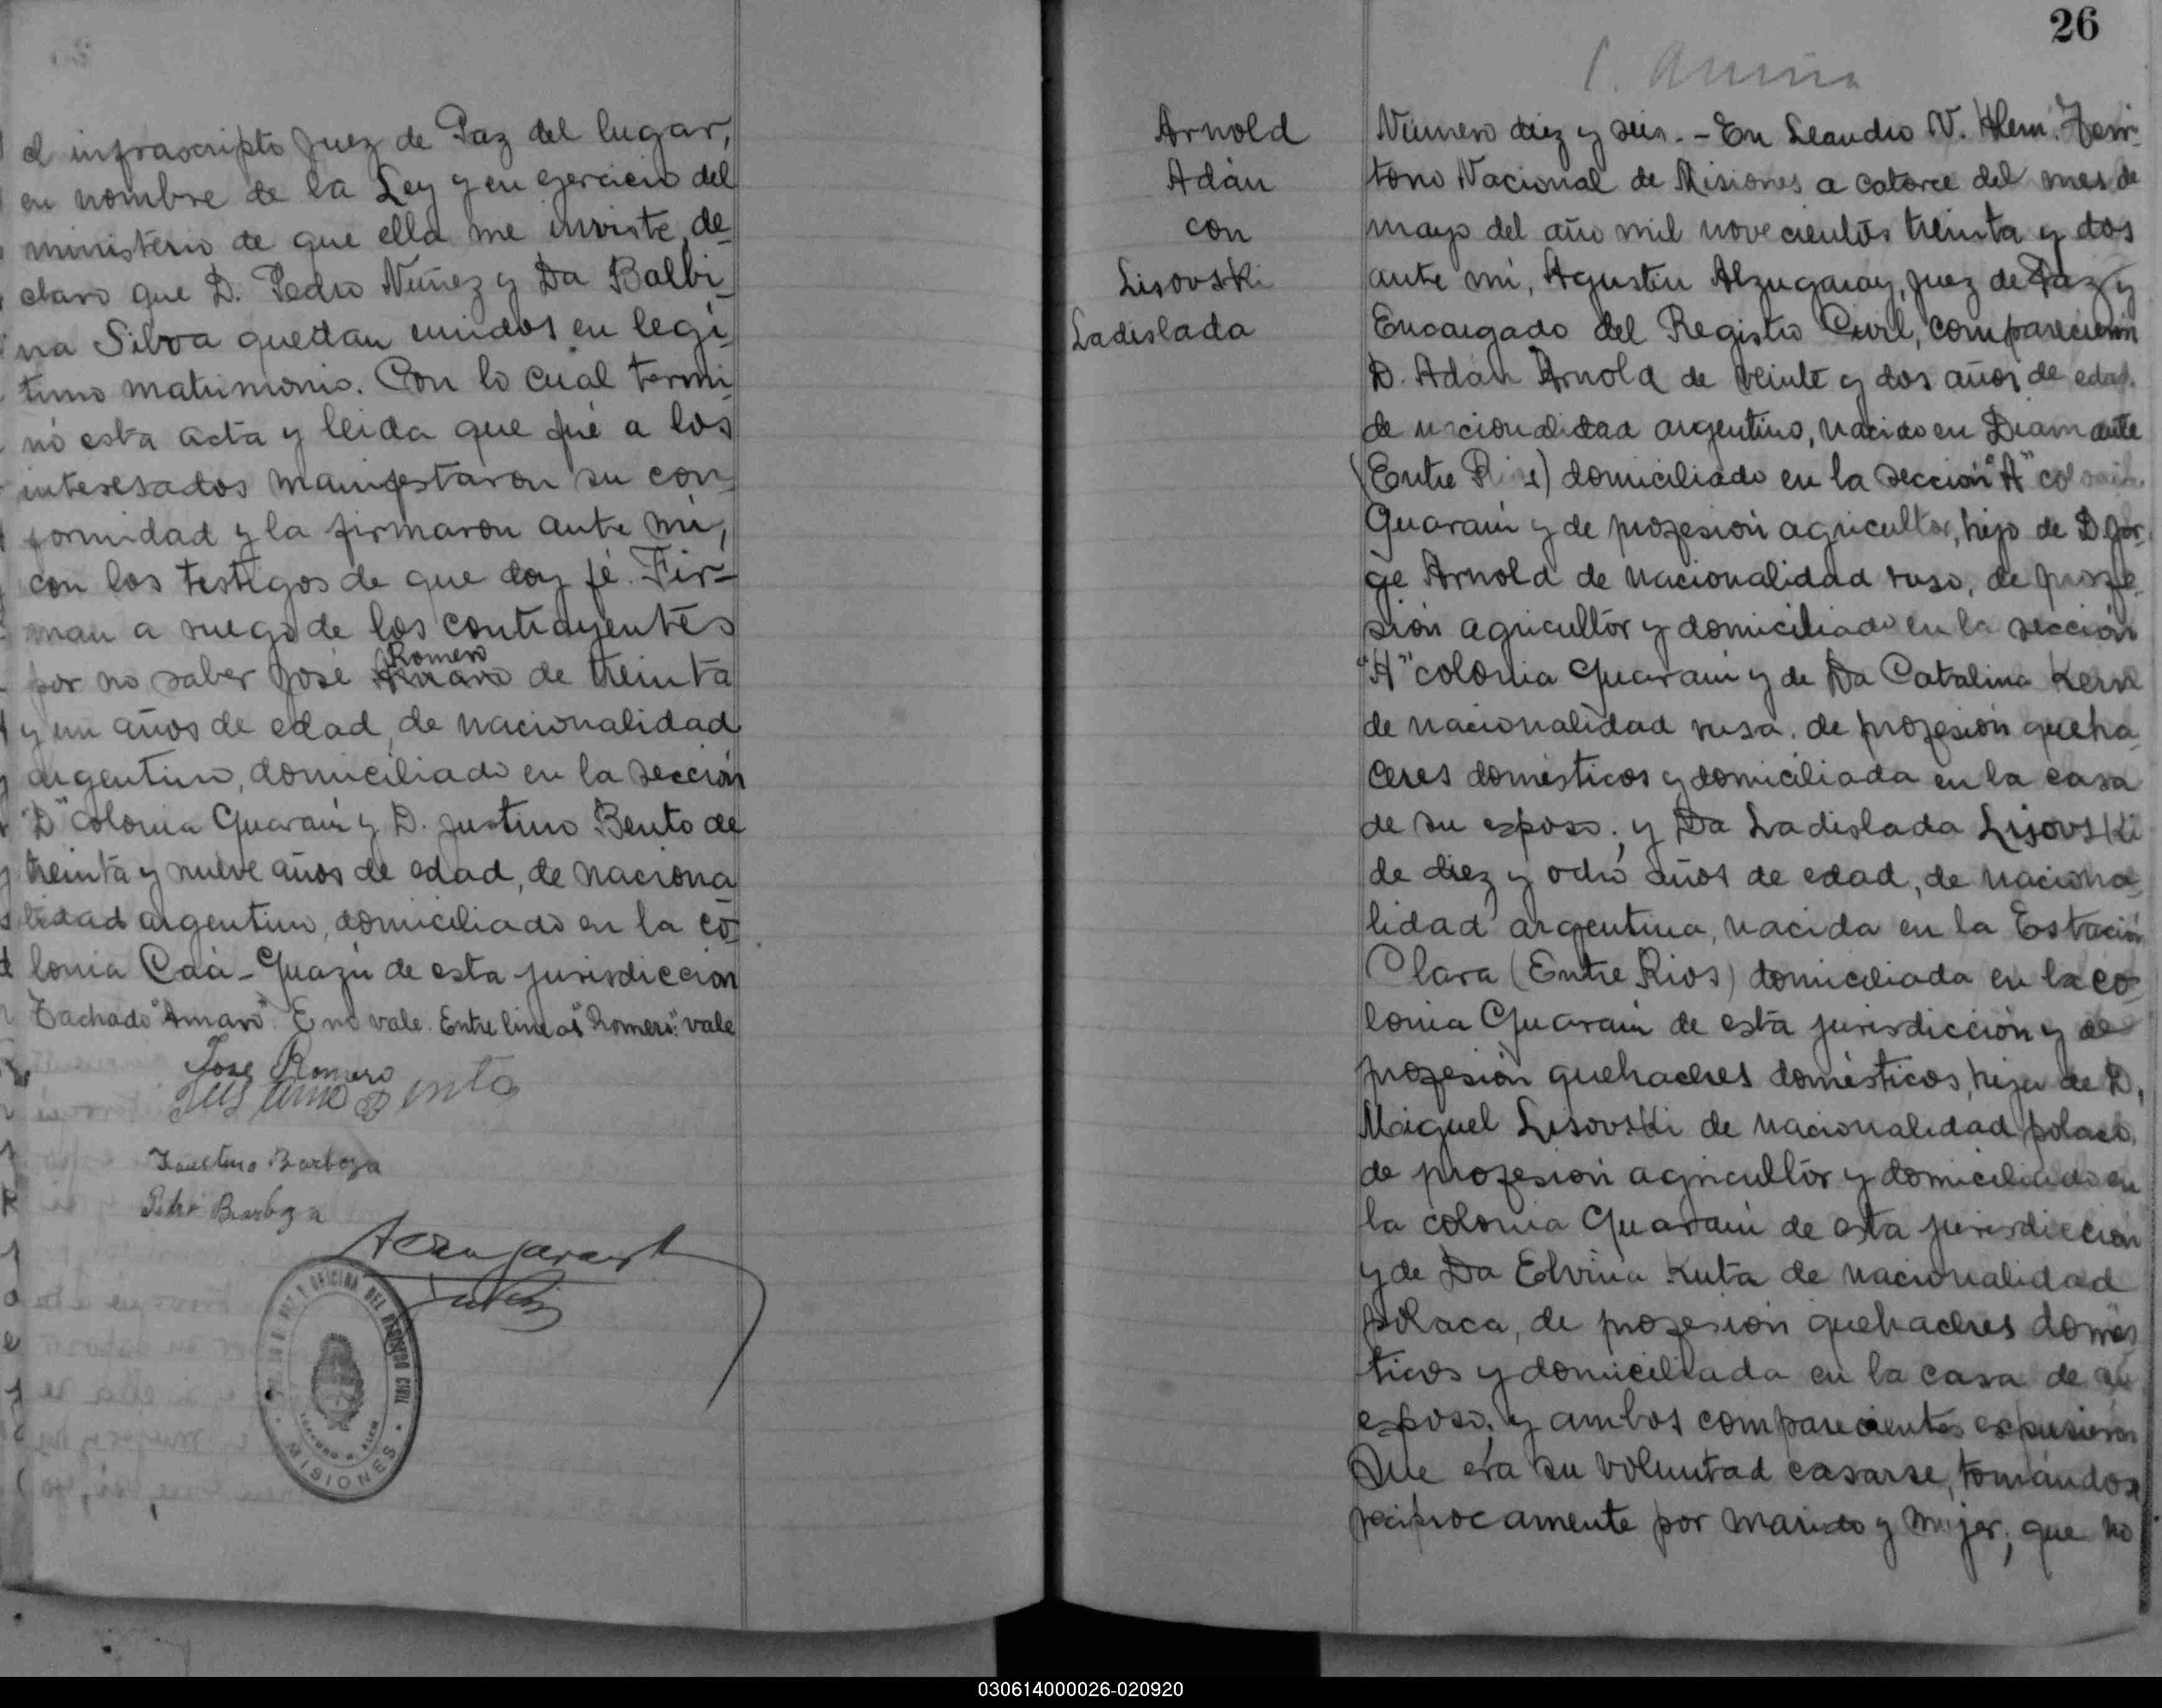 el infrascripto Juez de Paz del lugar,
en nombre de la Ley y en ejercicio del
ministerio de que ella me inviste, de-
claro que D. Pedro Nuñez y Da Balbi-
na Silva quedan unidos en legí-
timo matrimonio. Con lo cual termi-
nó esta acta y leida que fué a los
interesados manifestaron su con-
formidad y la firmaron ante mí,
con los testigos de que doy fé. Fir-
man a ruego de los contrayentes
Romero
por no saber José Amaro de treinta
y un años de edad, de nacionalidad
argentino, domiciliado en la sección
"D" colonia Guaraní y D. Justino Bento de
treinta y nueve años de edad, de naciona
lidad argentino, domiciliado en la co-
lonia Caá-Guazú de esta jurisdicción
Tachado "Amaro". E no vale. Entre lineas "Romero": vale
Jose Romero
Justino Bento
Faustino Barboza
Pedro Barboza
JUZ DE PAZ Y OFICINA DEL REGISTRO CIVIL
LEANDRO N. ALEM
MISIONES
26
Arnold
Adán
con
Lisovski
Ladislada
Número diez y seis. - En Leandro N. Alem. Terri-
torio Nacional de Misiones a catorce del mes de
mayo del año mil novecientos treinta y dos
ante mí, Agustin Alzugaray, Juez de Paz y
Encargado del Registro Civil, comparecieron
D. Adán Arnold de veinte y dos años de edad.
de nacionalidad argentino, nacido en Diamante
(Entre Rios) domiciliado en la sección "A" colonia
Guaraní y de profesión agricultor, hijo de D. Jor-
ge Arnold de nacionalidad ruso, de profe-
sión agricultor y domiciliado en la sección
"A" colonia Guaraní y de Da Catalina Kern
de nacionalidad rusa, de profesión queha-
ceres domésticos y domiciliada en la casa
de su esposo; y Da Ladislada Lisovski
de diez y ocho años de edad, de naciona-
lidad argentina, nacida en la Estación
Clara (Entre Rios) domiciliada en la co-
lonia Guaraní de esta jurisdicción y de
profesión quehaceres domésticos, hija de D.
Miguel Lisovski de nacionalidad polaco,
de profesión agricultor y domiciliado en
la colonia Guaraní de esta jurisdicción
y de Da Elvina Kuta de nacionalidad
polaca, de profesión quehaceres domés
ticos y domiciliada en la casa de su
esposo, y ambos comparecientes expusieron
Que era su voluntad casarse, tomándose
recíprocamente por marido y mujer; que no
030614000026-020920